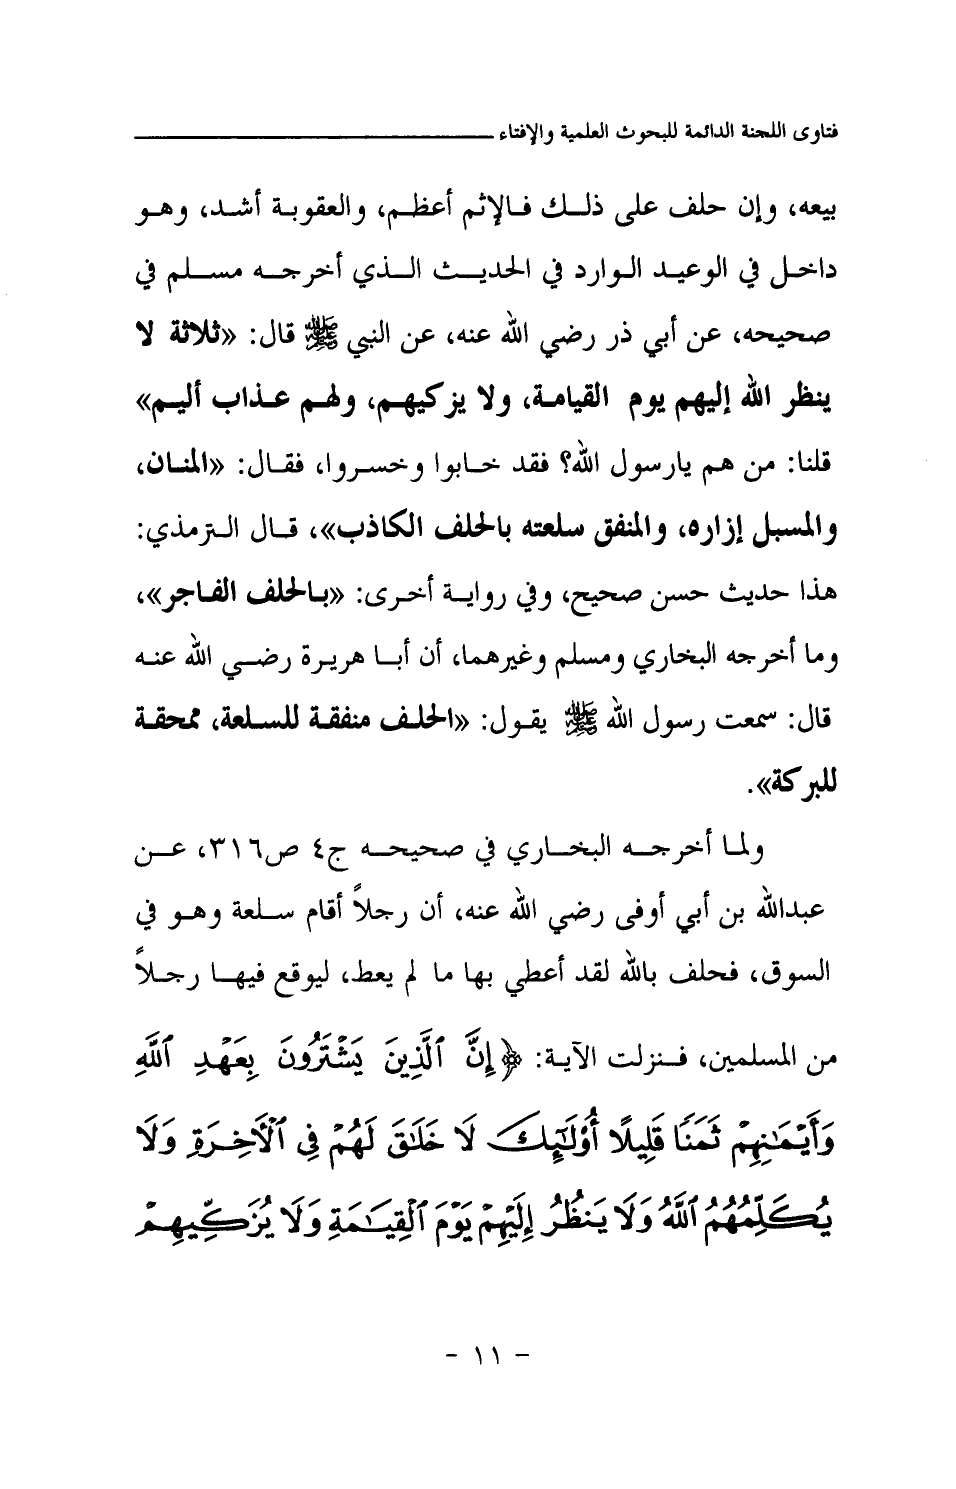 فتاوى اللجنة الدائمة للبحوث العلمية والإفتاء
بيعه، وإن حلف على ذلك فالإثم أعظم، والعقوبة أشد، وهو
داخل في الوعيد الوارد في الحديث الذي أخرجه مسلم في
صحيحه، عن أبي ذر رضي الله عنه، عن النبي ﷺ قال: «ثلاثة لا
ينظر الله إليهم يوم القيامة، ولا يزكيهم، ولهم عذاب أليم»
قلنا: من هم يارسول الله؟ فقد خابوا وخسروا، فقال: «المنان،
والمسبل إزاره، والمنفق سلعته بالحلف الكاذب»، قال الترمذي:
هذا حديث حسن صحيح، وفي رواية أخرى: «بالحلف الفاجر»،
وما أخرجه البخاري ومسلم وغيرهما، أن أبا هريرة رضي الله عنه
قال: سمعت رسول الله ﷺ يقول: «الحلف منفقة للسلعة، ممحقة
للبركة».
ولما أخرجه البخاري في صحيحه ج٤ ص٣١٦، عن
عبدالله بن أبي أوفى رضي الله عنه، أن رجلاً أقام سلعة وهو في
السوق، فحلف بالله لقد أعطي بها ما لم يعط، ليوقع فيها رجلاً
من المسلمين، فنزلت الآية: ﴿إِنَّ ٱلَّذِينَ يَشْتَرُونَ بِعَهْدِ ٱللَّهِ
وَأَيْمَٰنِهِمْ ثَمَنًا قَلِيلًا أُوْلَٰٓئِكَ لَا خَلَٰقَ لَهُمْ فِي ٱلْأَخِرَةِ وَلَا
يُكَلِّمُهُمُ ٱللَّهُ وَلَا يَنظُرُ إِلَيْهِمْ يَوْمَ ٱلْقِيَٰمَةِ وَلَا يُزَكِّيهِمْ
- ١١ -